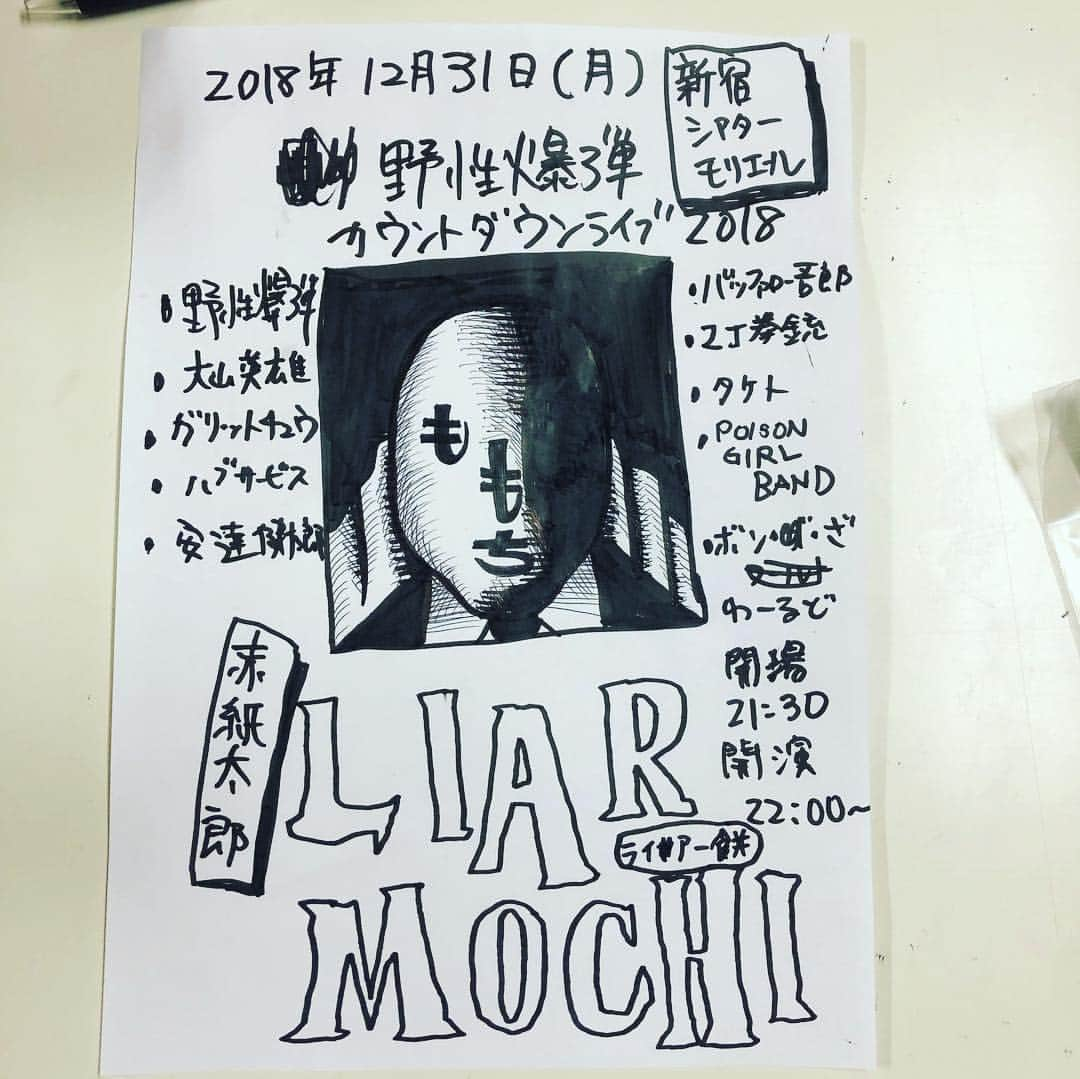 2018年 12月31日(月)
新宿
シアター
モリエール
野性爆弾
カウントダウンライブ 2018
・野性爆弾
・大山英雄
・ガリットチュウ
・ハブサービス
・安達健太郎
・バッファロー吾郎
・2丁拳銃
・タケト
・POISON
GIRL
BAND
・ボン・ぼ・ざ
わーるど
開場
21:30
開演
22:00~
もも
ち
末紙太郎
LIAR
ライヤアー餅
MOCHI